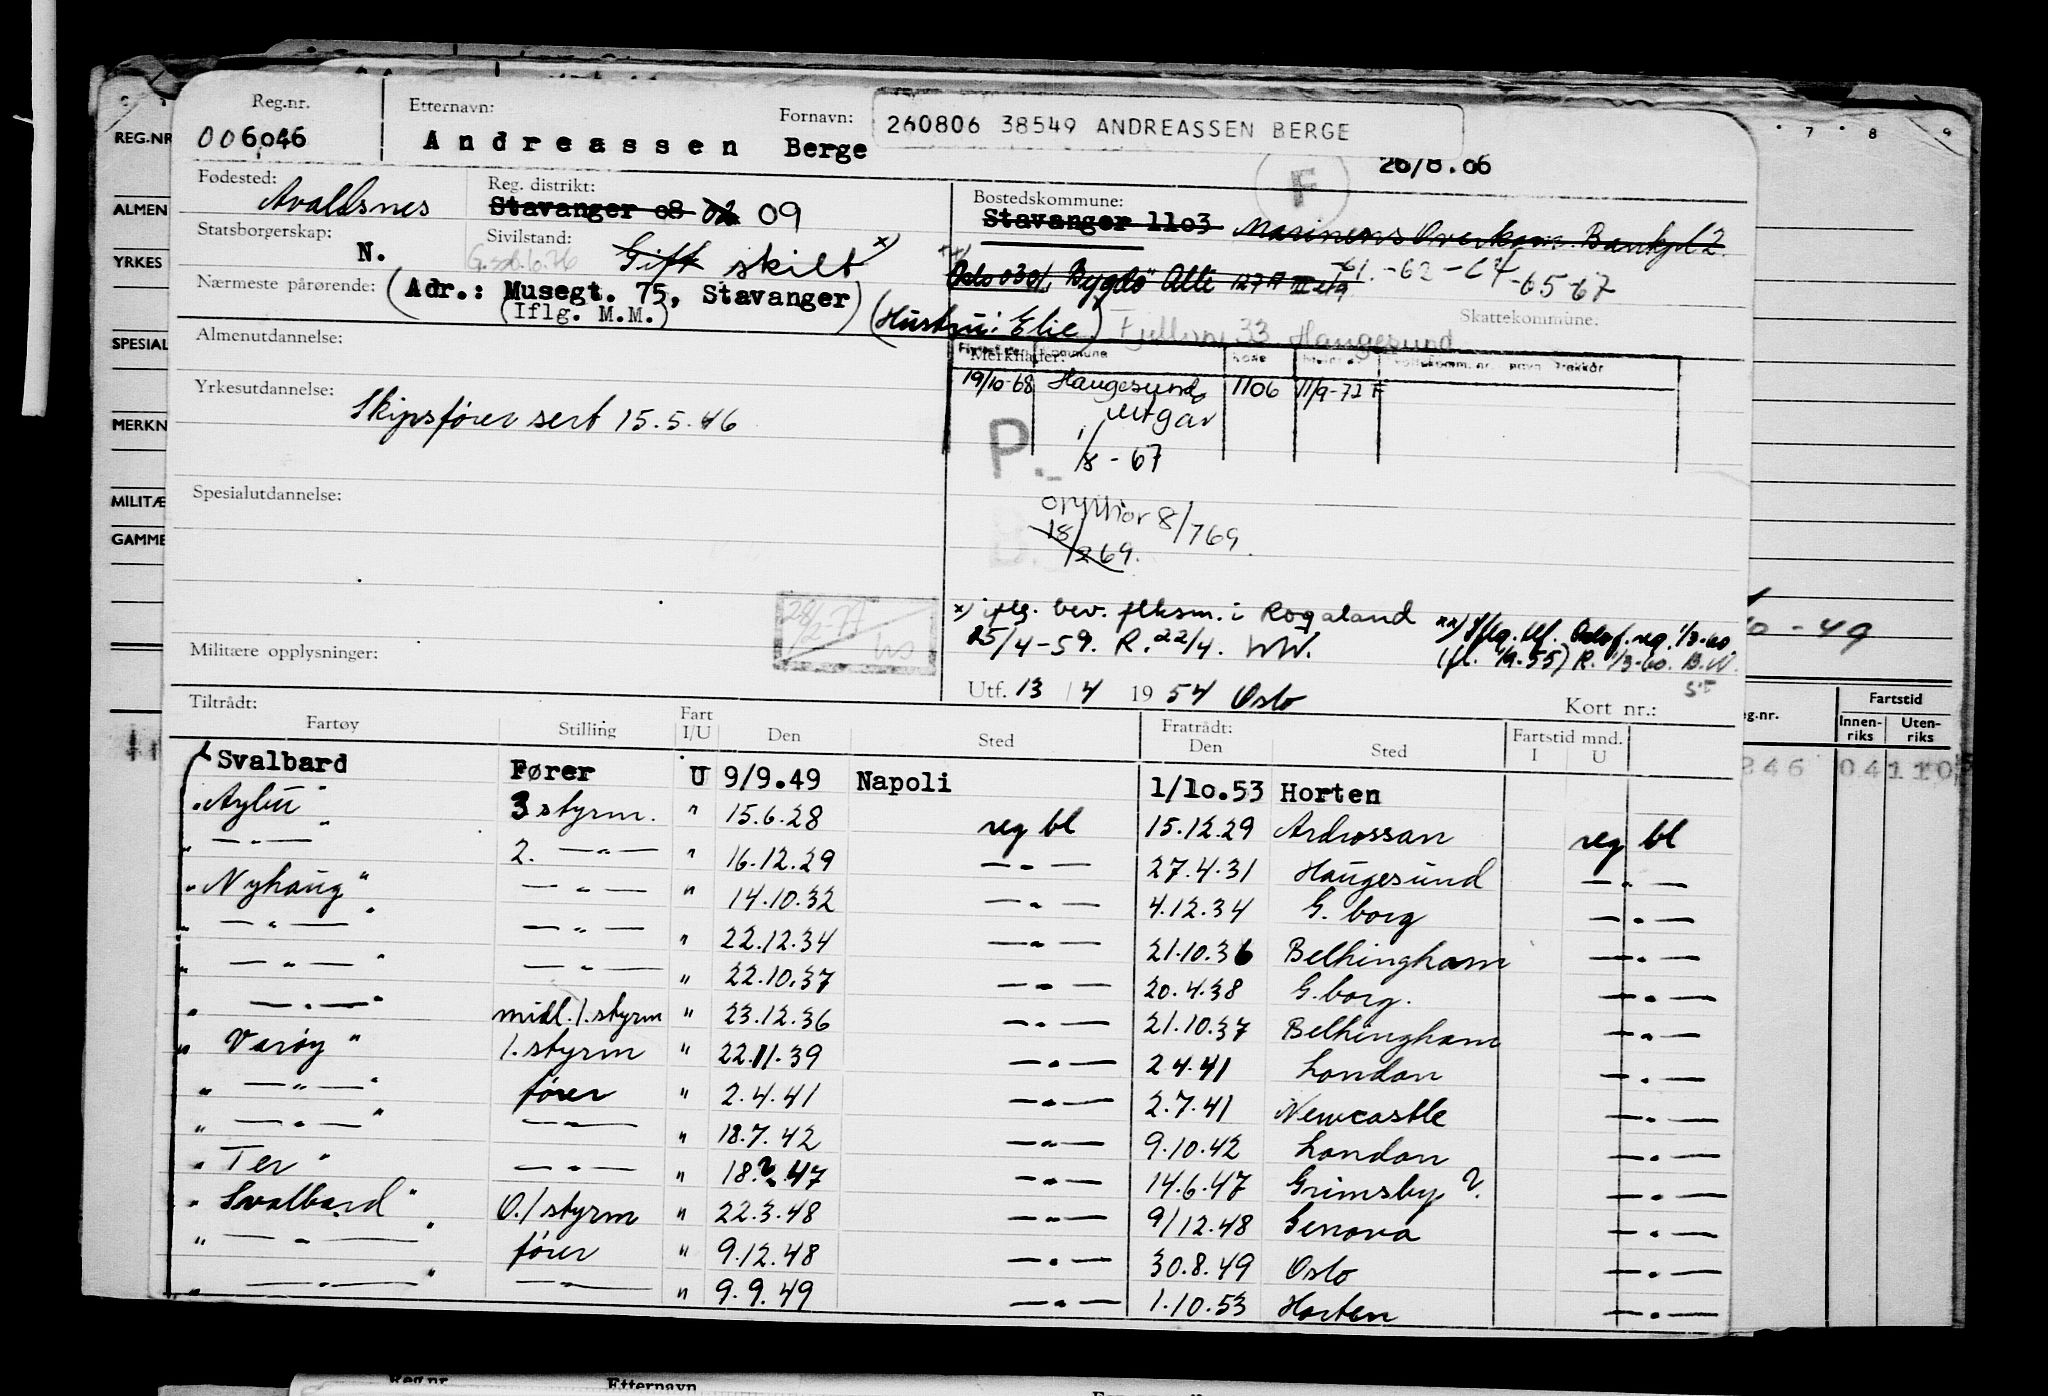 Reg.nr. Etternavn: Fornavn: 260806 38549 ANDREASSEN BERGE
006046 Andreassen Berge 26/8.06
F
Fødested: Avaldsnes Reg. distrikt: Stavanger 08 02 09 Bostedskommune: Stavanger 1103 Marinens Overkom. Bankpl 2.
Statsborgerskap: N. Sivilstand: Gift skilt x) xx) Oslo 0301, Bygdö Alle 127 -61. -62 -64 -65-67
Nærmeste pårørende: (Adr.: Musegt. 75, Stavanger) (Hustru: Elie)
(Iflg. M.M.) 33 Haugesund Skattekommune:
Almenutdannelse: Merknader:
19/10-68 Haugesund 1106 11/9-72 F
Yrkesutdannelse: Skipsfører sert 15.5.46 utgår
P.- 1/8 - 67
Spesialutdannelse: 8/769.
18/269.
x) iflg. bev. flksm. i Rogaland xx) Iflg. tlf. Oslo f.reg. 1/3-60
25/4-59. R. 22/4. WW. (fl. 1/9-55) R. 1/3-60. B.W.
28/2-77
Militære opplysninger:
Utf. 13/4 1954 Oslo Kort nr.:
Tiltrådt: Fratrådt: Fartstid mnd.
Fartøy Stilling Fart I/U Den Sted Den Sted I U
Svalbard Fører U 9/9.49 Napoli 1/10.53 Horten
3 styrm. " 15.6.28 reg bl 15.12.29 Ardrossan reg bl
" — " — " 2. — " — " 16.12.29 — " — 27.4.31 Haugesund — " —
" Nyhaug " — " — " 14.10.32 — " — 4.12.34 G. borg — " —
" — " — " — " — " 22.12.34 — " — 21.10.36 Belhingham — " —
" — " — " — " — " 22.10.37 — " — 20.4.38 G. borg. — " —
" — " — " midl. 1. styrm " 23.12.36 — " — 21.10.37 Belhingham — " —
" Varøy " 1. styrm " 22.11.39 — " — 2 4.41 London — " —
" — " — " fører " 2.4.41 — " — 2.7.41 Newcastle — " —
" — " — " — " — " 18.7.42 — " — 9.10.42 London — " —
" Ter " — " — " 18.2.47 — " — 14.6.47 Grimsby ?. — " —
" Svalbard " O./styrm " 22.3.48 — " — 9/12.48 Genova — " —
" — " — " fører " 9.12.48 — " — 30.8.49 Oslo — " —
" — " — " — " — " 9.9.49 — " — 1.10.53 Horten — " —
REG.NR
ALMEN
YRKES
SPESIAL
MERKN
MILITÆ
GAMME
7 8 9
- 49
eg.nr. Fartstid
Innen-riks Uten-riks
246 04 110
Reg.nr Etternavn